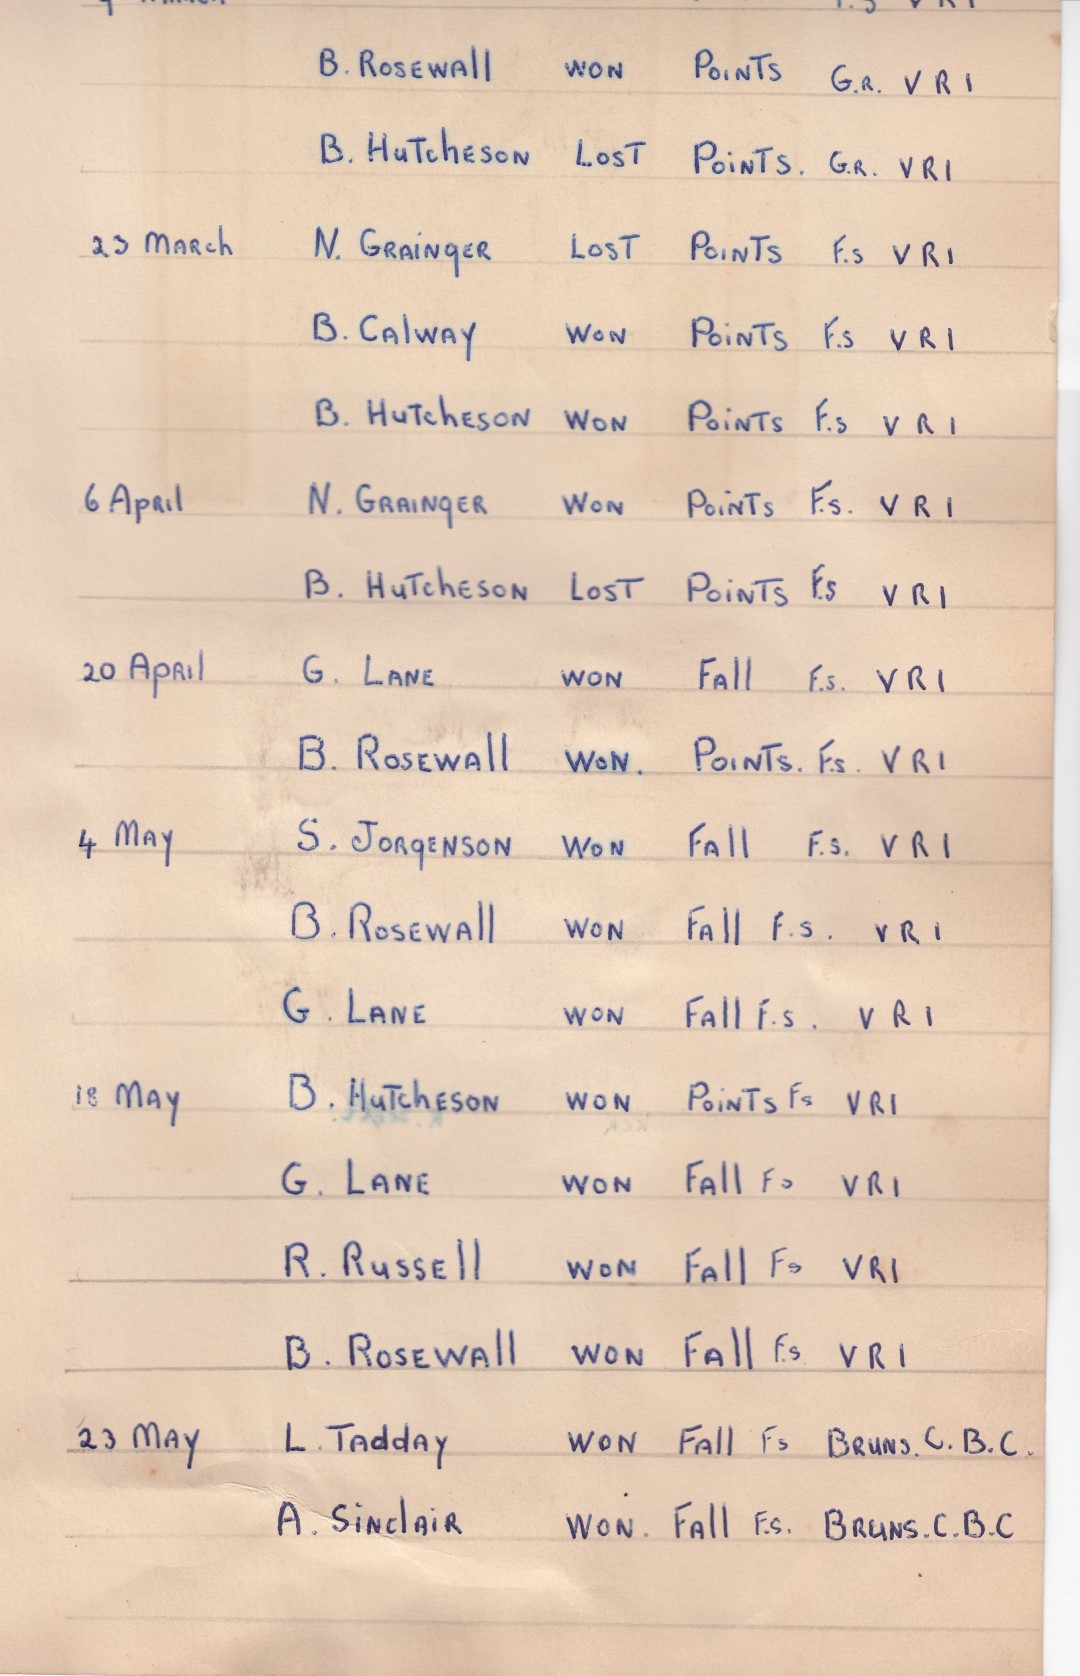 B. ROSEWALL WON POINTS G.R. V R I
B. HUTCHESON LOST POINTS. G.R. VRI
23 MARCH N. GRAINGER LOST POINTS F.S VRI
B. CALWAY WON POINTS F.S VRI
B. HUTCHESON WON POINTS F.S V R I
6 APRIL N. GRAINGER WON POINTS F.S. V R I
B. HUTCHESON LOST POINTS F.S VRI
20 APRIL G. LANE WON FALL F.S. VRI
B. ROSEWALL WON. POINTS. F.S. VRI
4 MAY S. JORGENSON WON FALL F.S. V R I
B. ROSEWALL WON FALL F.S. V R I
G. LANE WON FALL F.S. V R I
18 MAY B. HUTCHESON WON POINTS FS VRI
G. LANE WON FALL FS VRI
R. RUSSELL WON FALL FS VRI
B. ROSEWALL WON FALL F.S VRI
23 MAY L. TADDAY WON FALL FS BRUNS. C. B. C.
A. SINCLAIR WON. FALL F.S. BRUNS. C. B. C